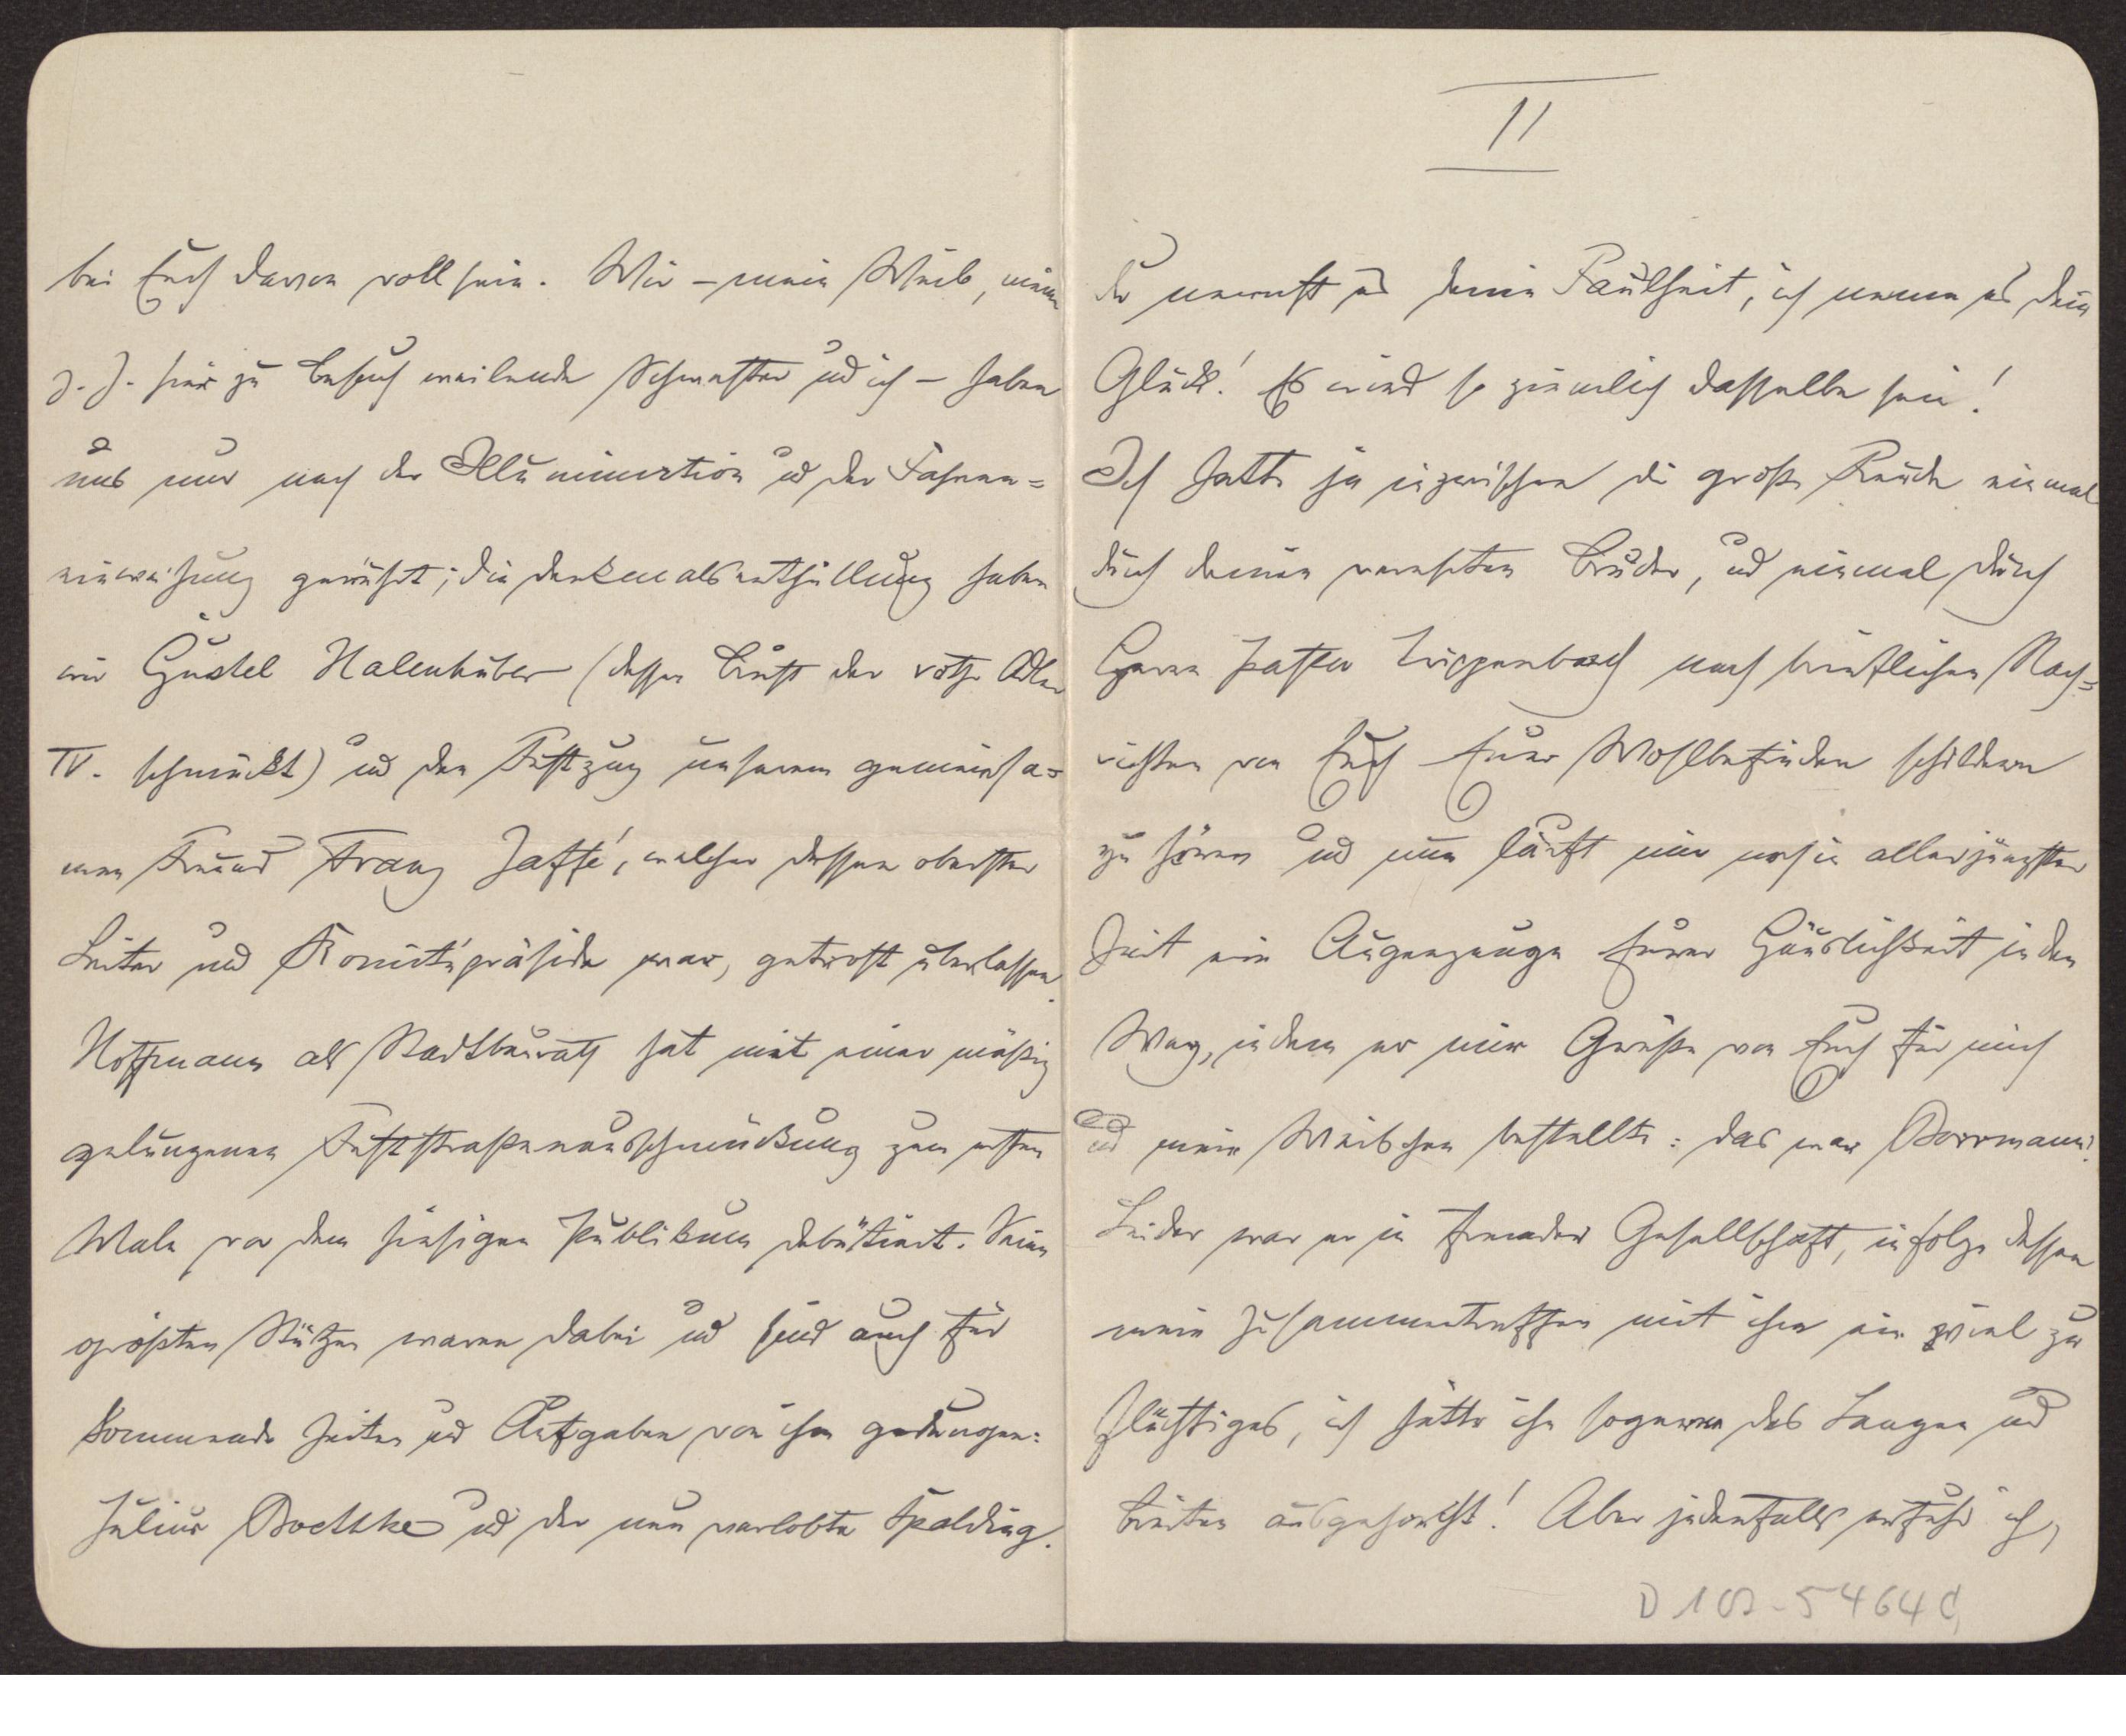 bei Euch davon voll sein. Wir – mein Weib, meine
z. Z. hier zu Besuch weilende Schwester ud ich – haben
uns nur nach der Illumination ud der Fahnen=
einweihung gewühlt; die Denkmalsenthüllung haben
wir Gustel Halenhuber (dessen Brust der rothe Adler
IV. schmückt) ud den Festzug unserem gemeinsa=
men Freund Franz Jaffé, welcher dessen oberster
Leiter und Komitépräside war, getrost überlassen.
Hoffmann als Stadtbaurath hat mit einer mäßig
gelungenen Feststraßenausschmückung zum ersten
Male vor dem hiesigen Publikum debütiert. Seine
größten Stützen waren dabei ud sind auch für
kommende Zeiten ud Aufgaben von ihm gedungen:
Julius Boethke ud der nun verlobte Spalding.
II
Du nennst es deine Faulheit, ich nenne es dein
Glück! Es wird so ziemlich dasselbe sein!
Ich hatte ja inzwischen die große Freude einmal
durch deinen verehrten Bruder, ud einmal durch
Herrn Pastor nach brieflichen Nach=
richten von Euch Euer Wohlbefinden schildern
zu hören ud nun läuft mir noch in allerjüngster
Zeit ein Augenzeuge Eurer Häuslichkeit in den
Weg, indem er mir Grüße von Euch für mich
ud mein Weibchen bestellte: das war Borrmann!
Leider war er in fremder Gesellschaft, infolge dessen
mein Zusammentreffen mit ihm ein viel zu
flüchtiges, ich hätte ihn so gerne des Langen ud
Breiten ausgehorcht! Aber jedenfalls erfuhr ich,